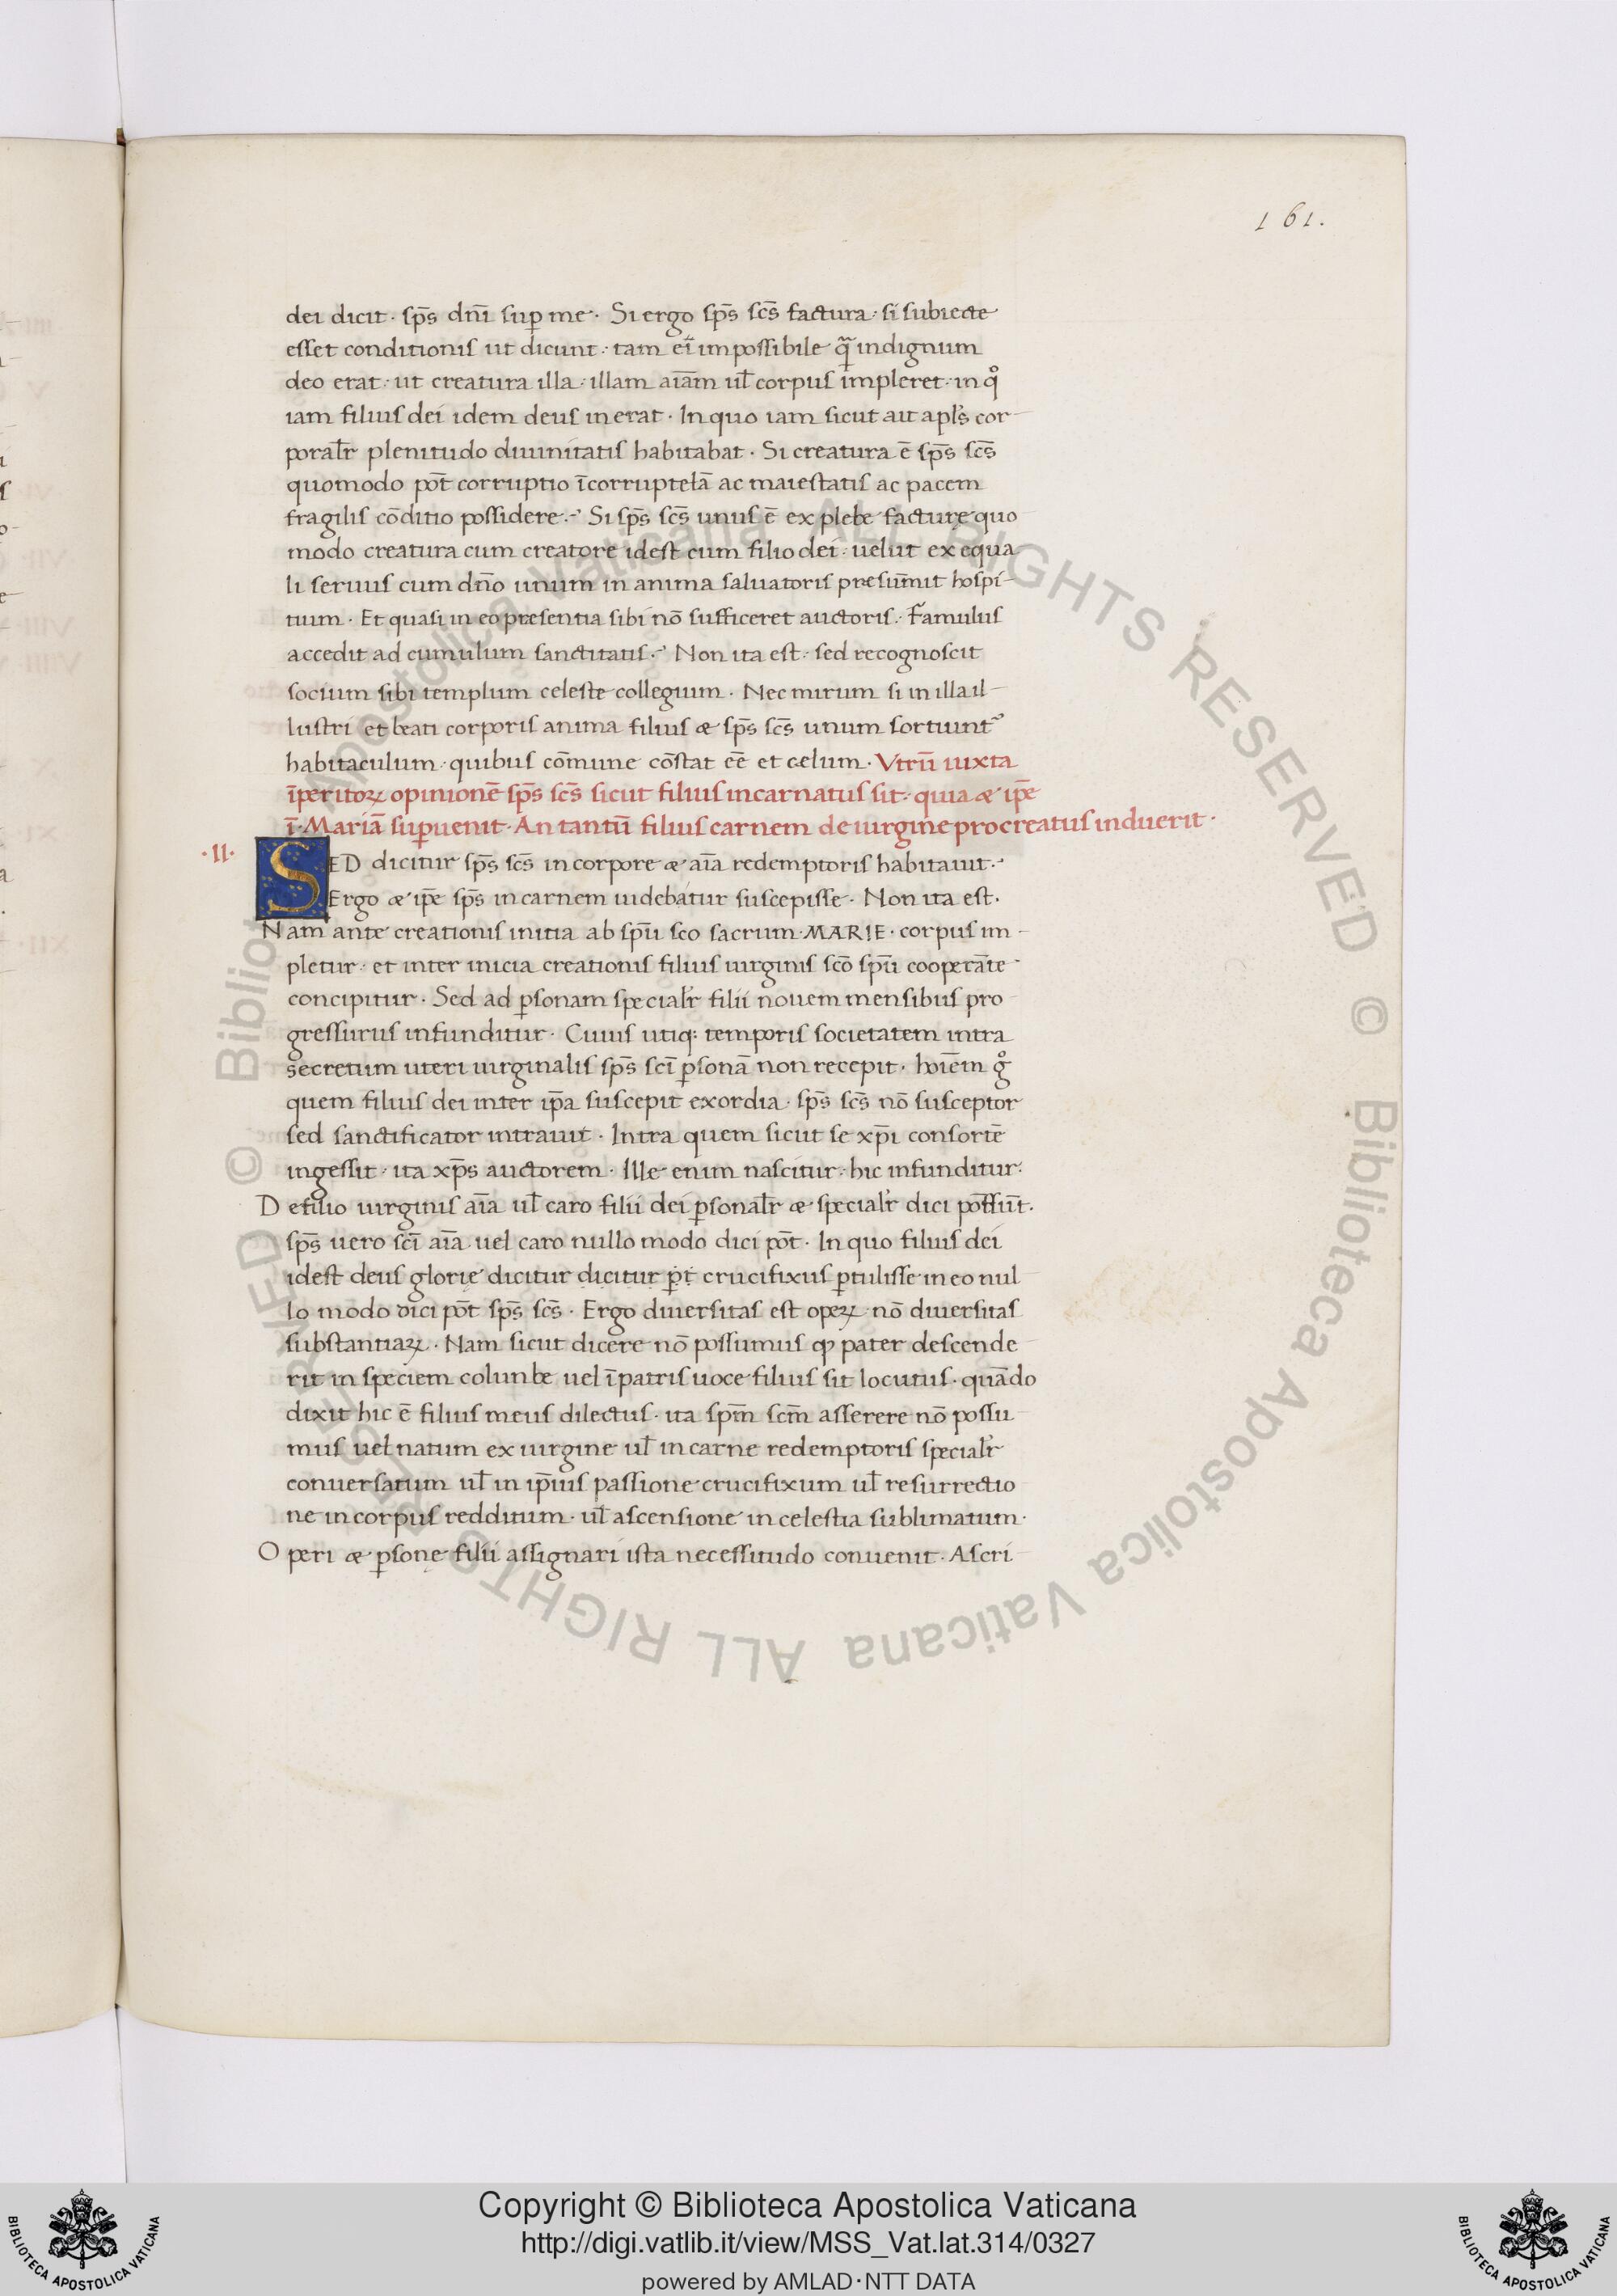 161.
dei dicit · sp̄s dn̄i suꝑ me · Si ergo sp̄s sc̄s factura · si subiecte
esset conditionis ut dicunt · tam ei īmpossibile qᷓ indignum
deo erat · ut creatura illa · illam aīam ul̄ corpus impleret · in qͦ
iam filius dei idem deus inerat · In quo iam sicut ait apl's cor-
poral'r plenitudo diuinitatis habitabat · Si creatura ē sp̄s sc̄s
quomodo pōt corruptio īcorruptelā ac maiestatis ac pacem
fragilis cōditio possidere · Si sp̄s sc̄s unus ē ex plebe facturę quo
modo creatura cum creatore idest cum filio dei · uelut ex equa
li seruus cum dn̄o unum in anima saluatoris presūmit hospi-
tium · Et quasi in eo presentia sibi nō sufficeret auctoris · Famulus
accedit ad cumulum sanctitatis · Non ita est · sed recognoscit
socium sibi templum celeste collegium · Nec mirum si in illa il-
lustri et beati corporis anima filius & sp̄s sc̄s unum sortiunt᷑
habitaculum · quibus cōmune cōstat eē et celum · Vtrū iuxta
īperitoꝝ opinionē sp̄s sc̄s sicut filius incarnatus sit · quia & ip̄e
ī Mariā suꝑuenit · An tantū filius carnem de uirgine procreatus induerit ·
·II·
SED dicitur sp̄s sc̄s in corpore & aīa redemptoris habitauit ·
Ergo & ip̄e sp̄s in carnem uidebatur suscepisse · Non ita est ·
Nam ante creationis initia ab sp̄u sco sacrum · MARIE · corpus im-
pletur · et inter inicia creationis filius uirginis scō sp̄u cooperāte
concipitur · Sed ad ꝑsonam special'r filii nouem mensibus pro
gressurus infunditur · Cuius utiq; temporis societatem intra
secretum uteri uirginalis sp̄s sc̄i ꝑsonā non recepit · hoīem gͦ
quem filius dei inter ip̄a suscepit exordia · sp̄s sc̄s nō susceptor
sed sanctificator intrauit · Intra quem sicut se xp̄i consortē
ingessit · ita xp̄s auctorem · Ille enim nascitur · hic infunditur ·
De filio uirginis aīa ul̄ caro filii dei ꝑsonal'r & special'r dici pōssūt ·
sp̄s uero sc̄i aīa · uel caro nullo modo dici pōt · In quo filius dei
idest deus glorię dicitur dicitur ꝑt crucifixus ꝑtulisse in eo nul
lo modo dici pōt sp̄s sc̄s · Ergo diuersitas est opeꝝ · nō diuersitas
substantiaꝝ · Nam sicut dicere nō possumus ꝙ pater descende
rit in speciem colunbe uel ī patris uoce filius sit locutus · quādo
dixit hic ē filius meus dilectus · ita sp̄m sc̄m asserere nō possu
mus uel natum ex uirgine ul̄ in carne redemptoris special'r
conuersatum ul̄ in ip̄ius passione crucifixum ul̄ resurrectio
ne in corpus redditum · ul̄ ascensione in celestia sublimatum ·
Operi & ꝑsonę filii assignari ista necessitudo conuenit · Ascri
Copyright © Biblioteca Apostolica Vaticana
http://digi.vatlib.it/view/MSS_Vat.lat.314/0327
powered by AMLAD·NTT DATA